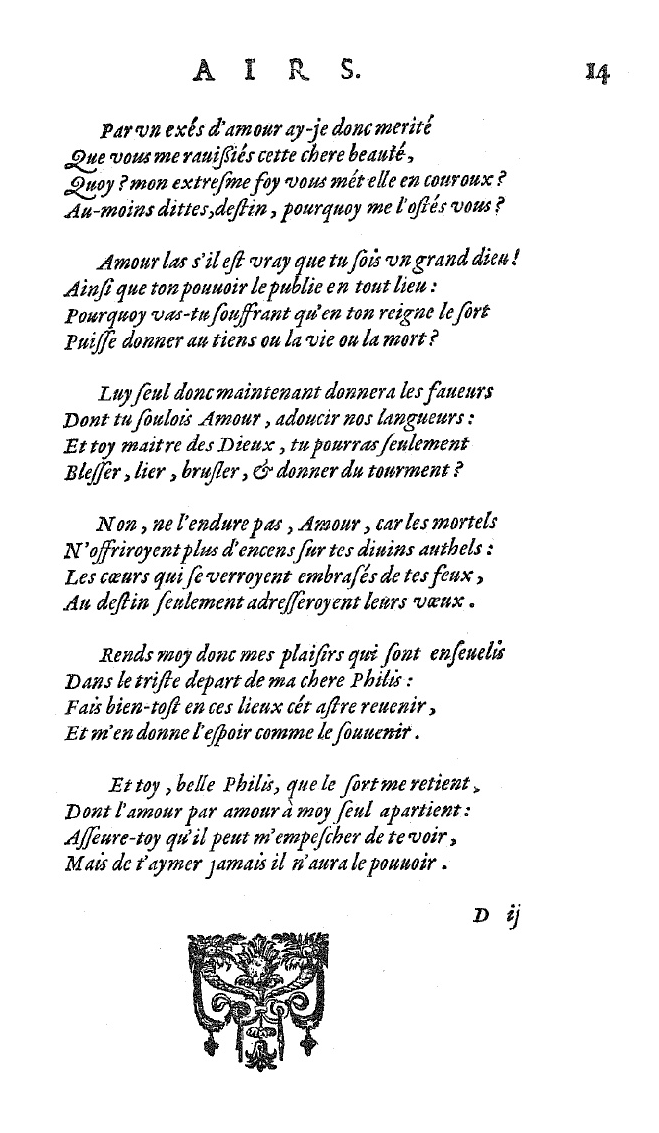 AIRS. 14
Par vn exés d'amour ay-je donc merité
Que vous me rauiſſiés cette chere beauté,
Quoy ? mon extreſme foy vous mét elle en couroux ?
Au-moins dittes, deſtin, pourquoy me l'oſtés vous ?
Amour las s'il eſt vray que tu ſois vn grand dieu !
Ainſi que ton pouuoir le publie en tout lieu :
Pourquoy vas-tu ſouffrant qu'en ton reigne le ſort
Puiſſe donner au tiens ou la vie ou la mort ?
Luy ſeul donc maintenant donnera les faueurs
Dont tu ſoulois Amour, adoucir nos langueurs :
Et toy maitre des Dieux, tu pourras ſeulement
Bleſſer, lier, bruſler, & donner du tourment ?
Non, ne l'endure pas, Amour, car les mortels
N'offriroyent plus d'encens ſur tes diuins authels :
Les cœurs qui ſe verroyent embraſés de tes feux,
Au deſtin ſeulement adreſſeroyent leurs vœux.
Rends moy donc mes plaiſirs qui ſont enſeuelis
Dans le triſte depart de ma chere Philis :
Fais bien-toſt en ces lieux cét aſtre reuenir,
Et m'en donne l'eſpoir comme le ſouuenir.
Et toy, belle Philis, que le ſort me retient,
Dont l'amour par amour à moy ſeul apartient :
Aſſeure-toy qu'il peut m'empeſcher de te voir,
Mais de t'aymer jamais il n'aura le pouuoir.
D ij